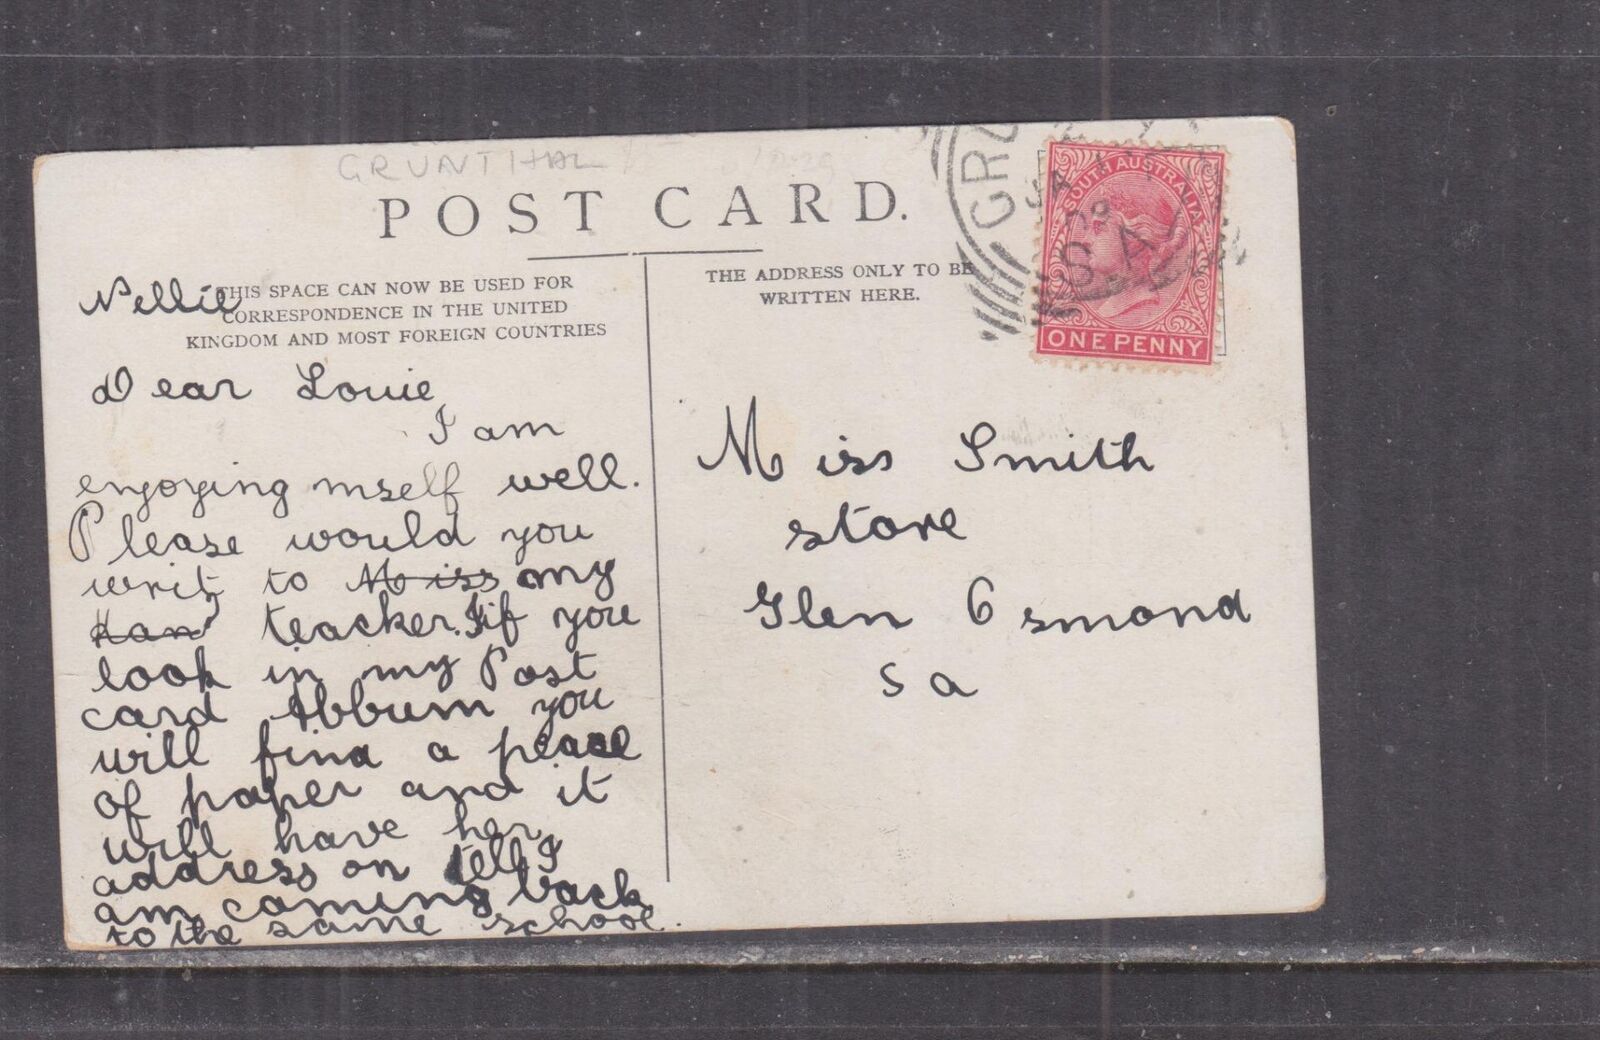 GRUNTHAL
POST CARD.
THIS SPACE CAN NOW BE USED FOR
CORRESPONDENCE IN THE UNITED
KINGDOM AND MOST FOREIGN COUNTRIES
Nellie
Dear Louie,
I am
enjoying mself well.
Please would you
writ to Miss my
Han teacker. I if you
look in my Post
card Abbum you
will find a peace
of paper and it
will have her
address on tell I
am coming back
to the same school.
THE ADDRESS ONLY TO BE
WRITTEN HERE.
GRU
JA
09
S.A
SOUTH AUSTRALIA
ONE PENNY
Miss Smith
store
Glen Osmond
S a